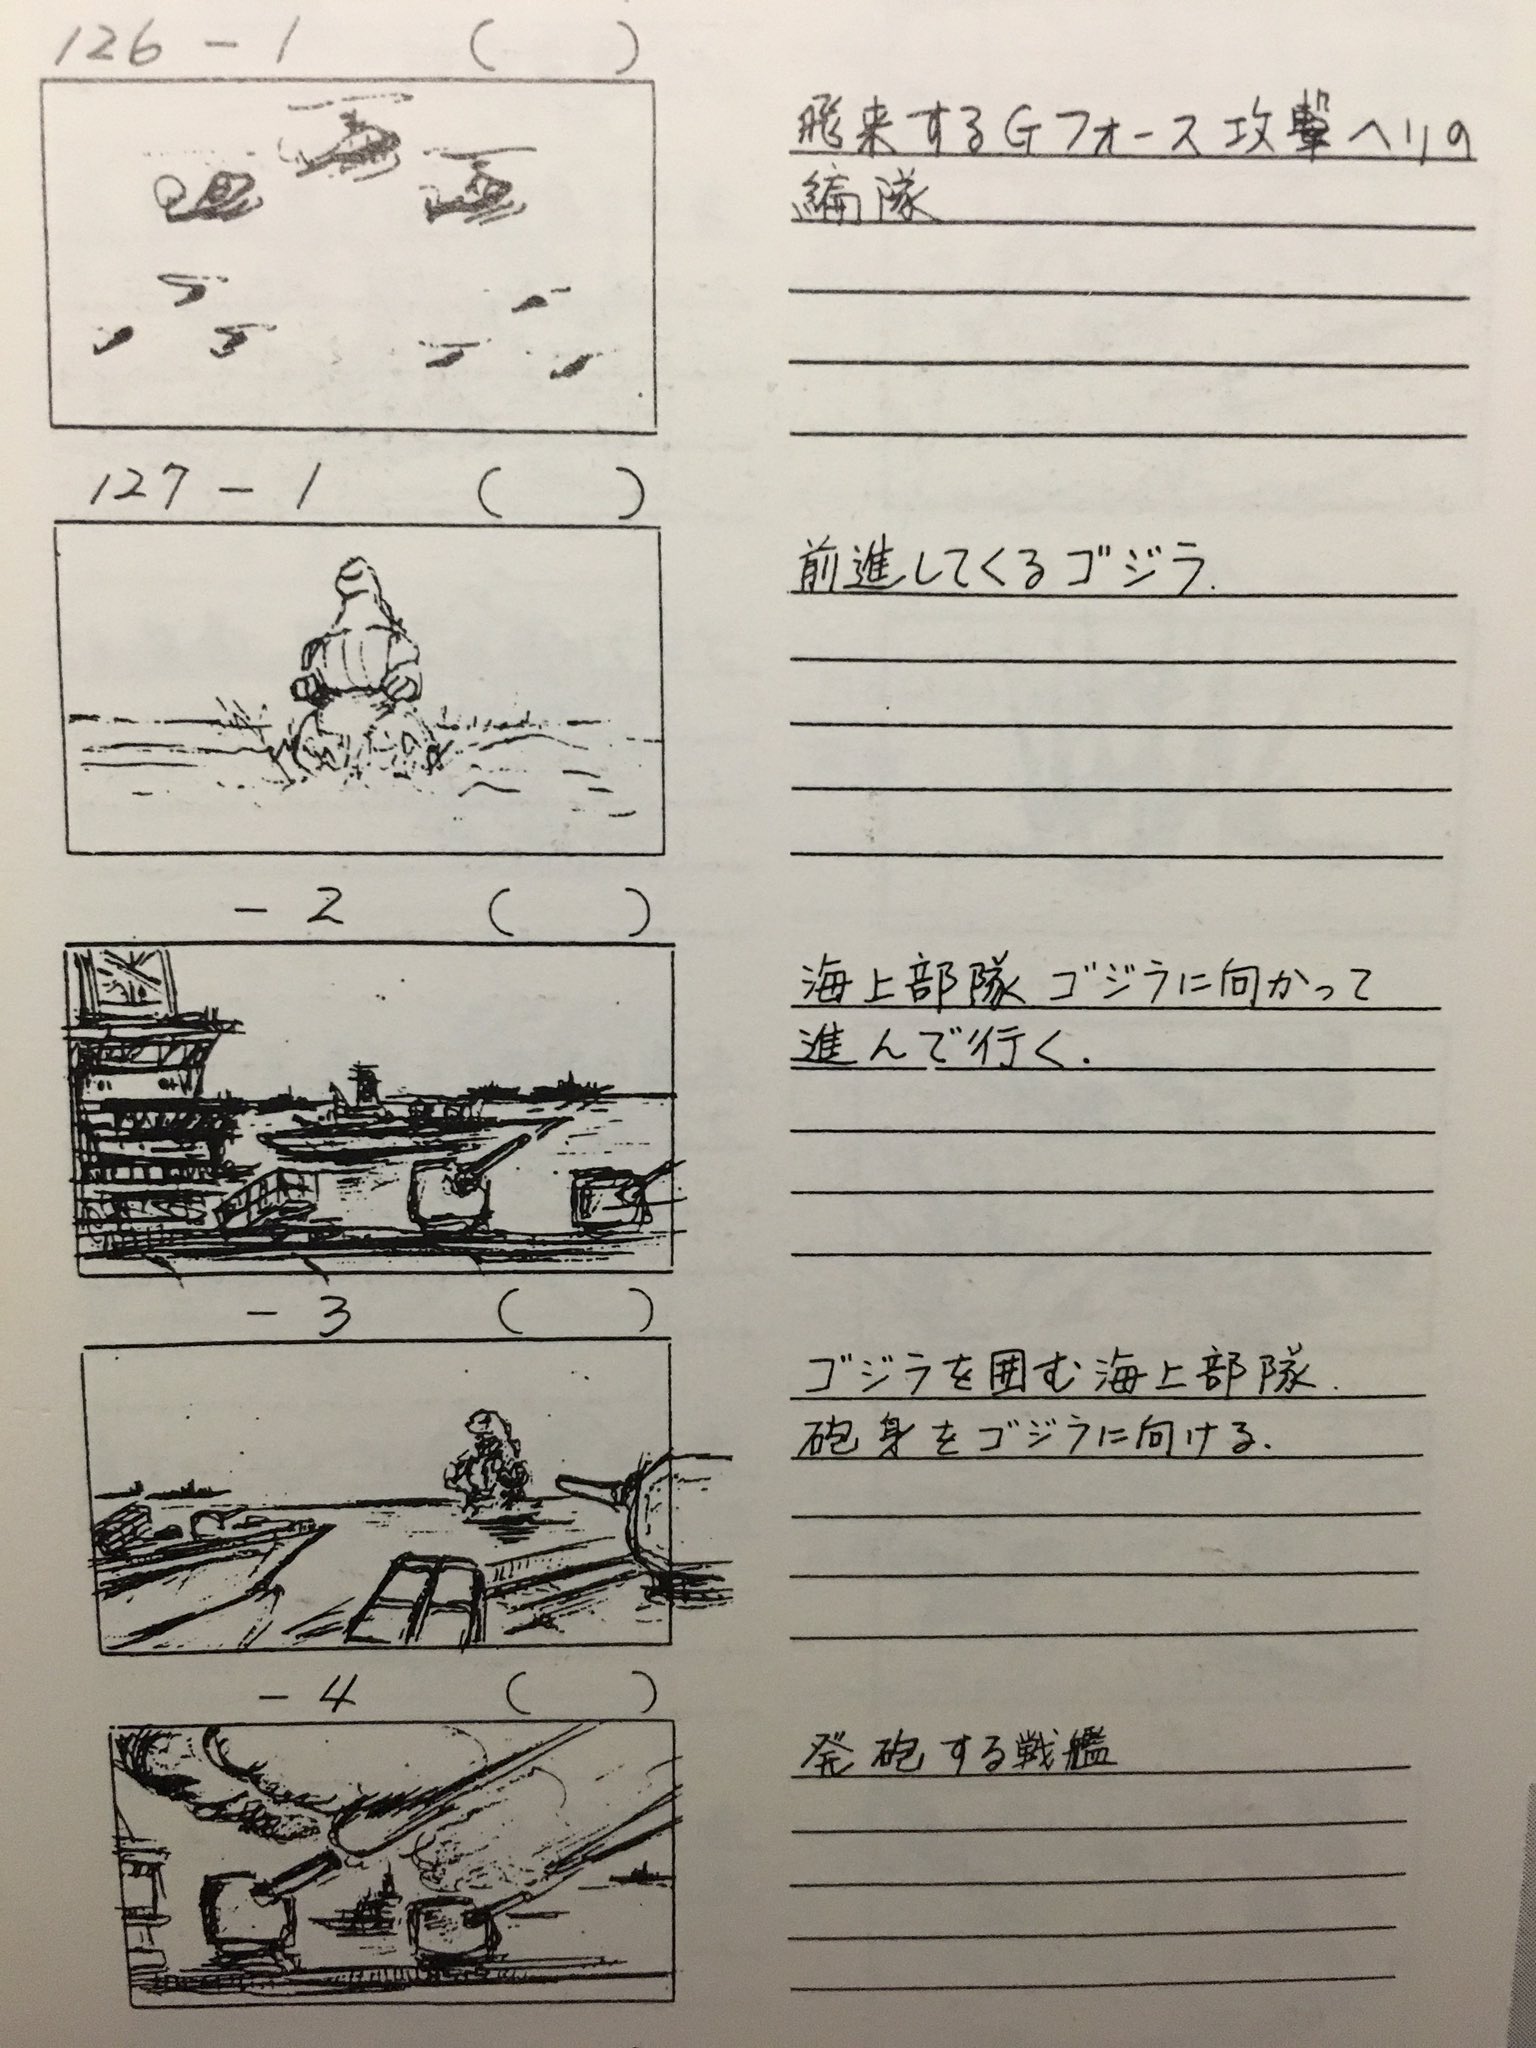 126-1 ( )
飛来するGフォース攻撃ヘリの
編隊
127-1 ( )
前進してくるゴジラ.
-2 ( )
海上部隊 ゴジラに向かって
進んで行く.
-3 ( )
ゴジラを囲む海上部隊.
砲身をゴジラに向ける.
-4 ( )
発砲する戦艦